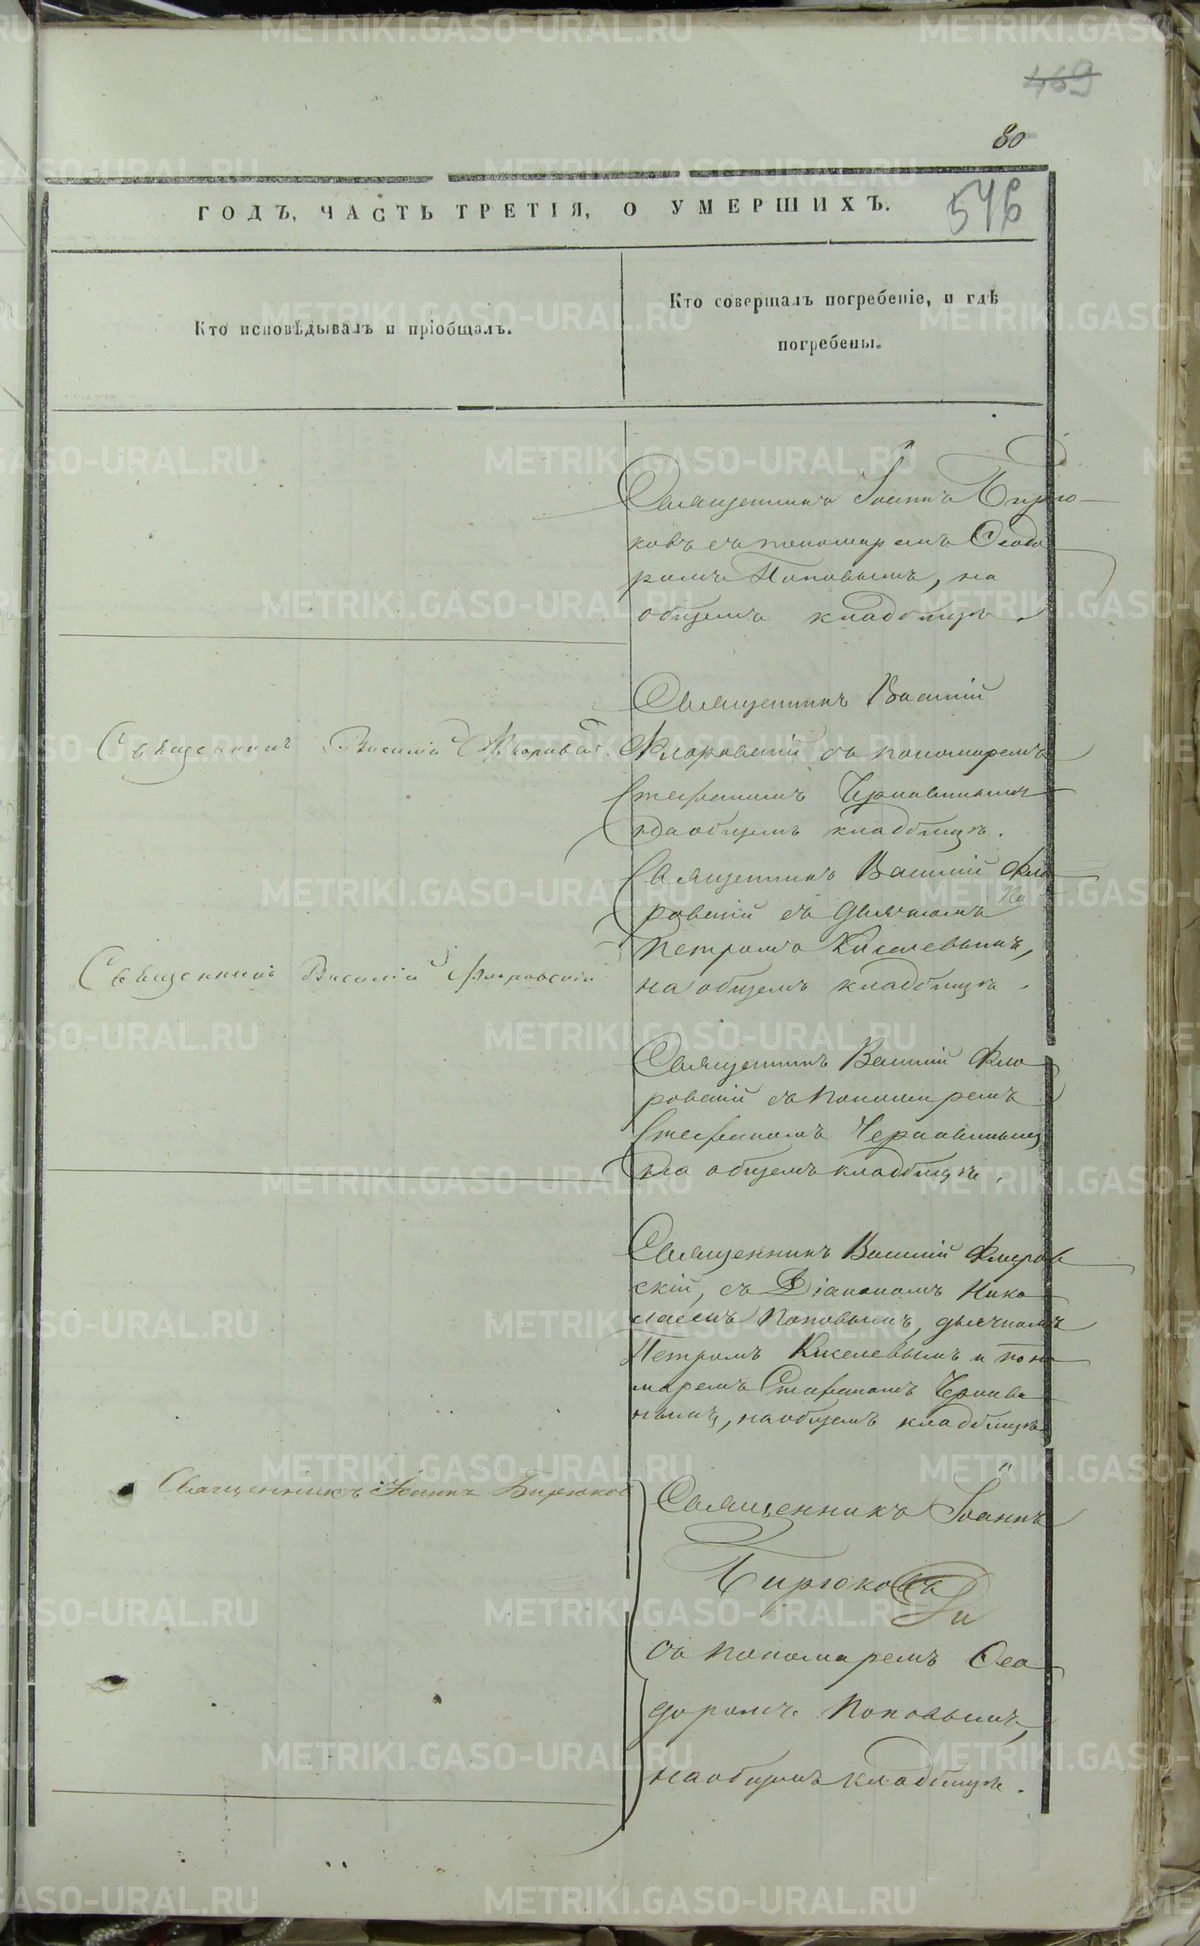 469
80
546
ГОДЪ, ЧАСТЬ ТРЕТІЯ, О УМЕРШИХЪ.
Кто исповѣдывалъ и пріобщалъ.
Кто совершалъ погребеніе, и гдѣ
погребены.
Священникъ Іоаннъ Бирю-
ковъ съ пономаремъ Ѳеодо
ромъ Поповымъ, на
общемъ кладбищѣ.
Священникъ Василій Флоровскій
Священникъ Василій
Флоровскій съ пономаремъ
Стефаномъ Чернавинымъ
на общемъ кладбищѣ.
Священникъ Василій Фло
ровскій съ дьячкомъ
Петромъ Киселевымъ,
на общемъ кладбищѣ.
Священникъ Василій Флоровскій
Священникъ Василій Фло
ровскій съ пономаремъ
Стефаномъ Чернавинымъ
на общемъ кладбищѣ.
Священникъ Василій Флоров
скій, съ Діакономъ Нико
лаемъ Поповымъ, дьячкомъ
Петромъ Киселевымъ и поно
маремъ Стефаномъ Чернави
нымъ, на общемъ кладбищѣ.
Священникъ Іоаннъ Бирюковъ
Священникъ Іоаннъ
Бирюковъ
съ пономаремъ Ѳео
доромъ Поповымъ,
на общемъ кладбищѣ.
METRIKI.GASO-URAL.RU